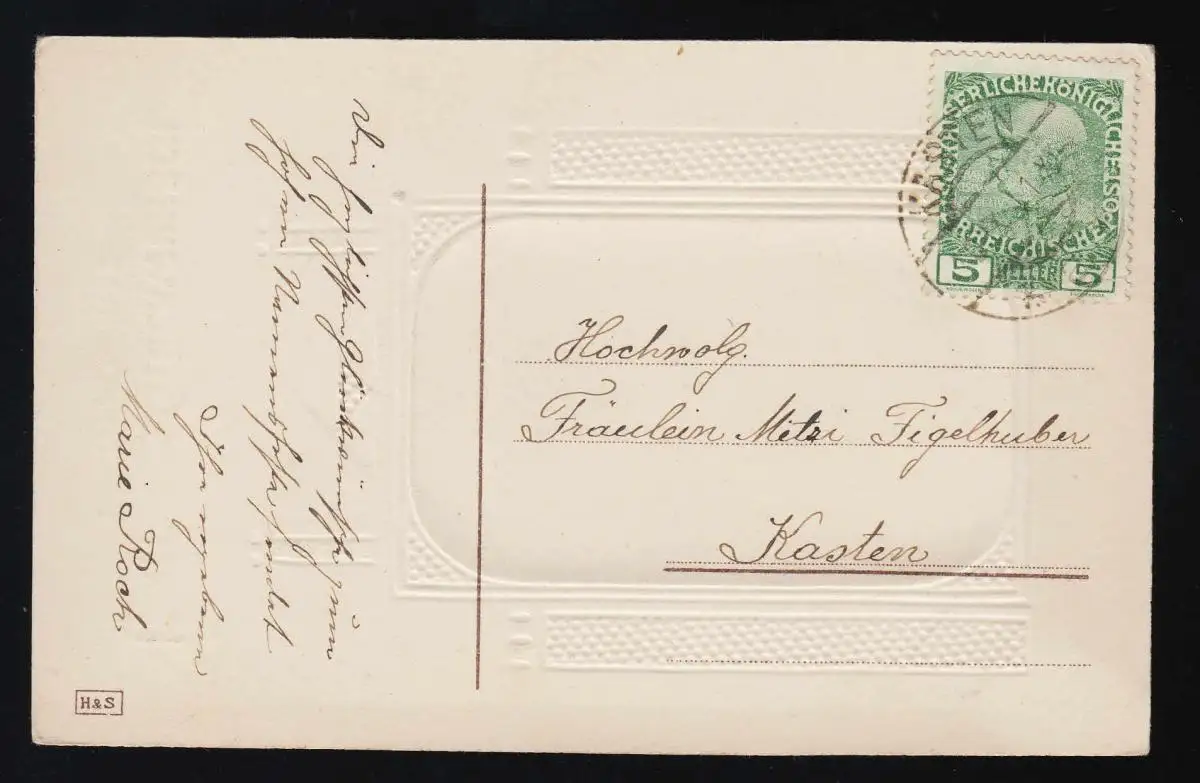 Die herzlichsten Glückwünsche zum
hohen Namensfeste sendet
Ihre ergebene
Marie Koch
H&S
KAISERLICHE KÖNIGLICHE ÖSTERREICHISCHE POST
5 HELLER 5
KASTEN
Hochwolg.
Fräulein Mitzi Figelhuber
Kasten